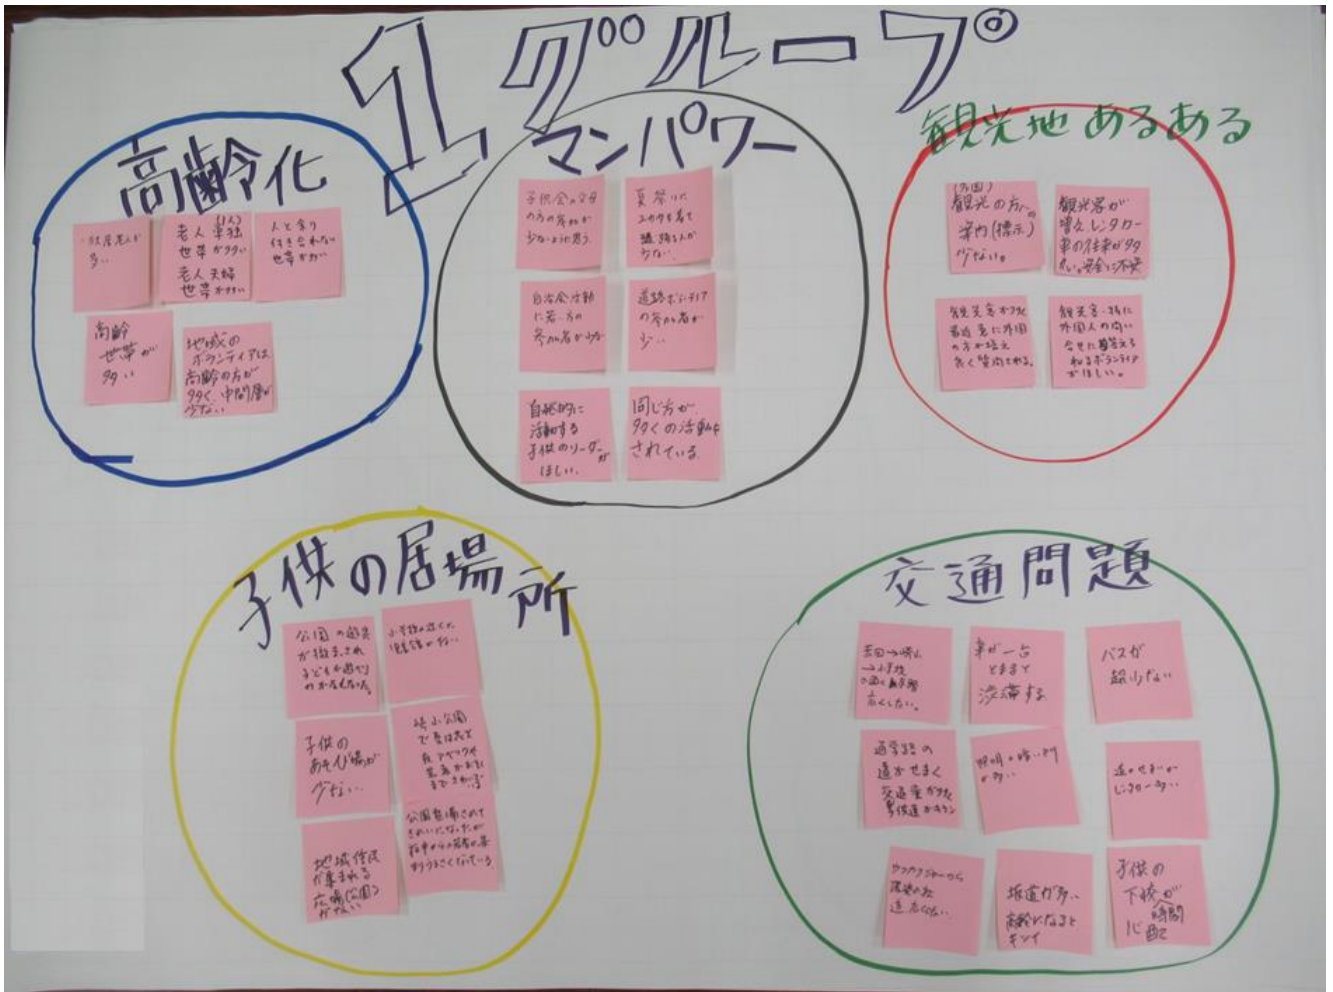 1グループ
高齢化
独居老人が
多い
老人単独(1人)
世帯が多い
老人夫婦
世帯が多い
人と余り
付き合わない
世帯が多い
高齢
世帯が
多い
地域の
ボランティアは
高齢の方が
多く、中間層が
少ない
マンパワー
子供会の父母
の方の参加が
少ないように思う
夏祭りに
ユカタを着て
踊る人が
少ない
自治会活動
に若い方の
参加者が少ない
道路ボランティア
の参加者が
少い
自発的に
活動する
子供のリーダーが
ほしい。
同じ方が
多くの活動を
されている
観光地あるある
(外国)
観光の方への
案内(標示)
少ない。
観光客が
増え、レンタカー
車の往来が多
い。安全に不安
観光客が多く
最近更に外国
の方が増え
良く質問される。
観光客・特に
外国人の問い
合せに答え
るボランティア
がほしい。
子供の居場所
公園の遊具
が撤去され
子どもが遊べるものがなくなった。
小学校の近くに
児童館がない
子供の
あそび場が
少ない
崎山公園
で
地域住民
が集まれる
広場(公園)
がない
公園整備されて
きれいになったが
うるさくなっている
交通問題
→崎山
→小学校
広くしたい。
車が一台
とまると
渋滞する
バスが
超少ない
通学路の
道がせまく
交通量が多く
子供達がキケン
照明の暗い所
が多い
道がせまいが
レンタカー多い
道
坂道が多い
高齢になると
キツイ
子供の
下校が
時間
心配